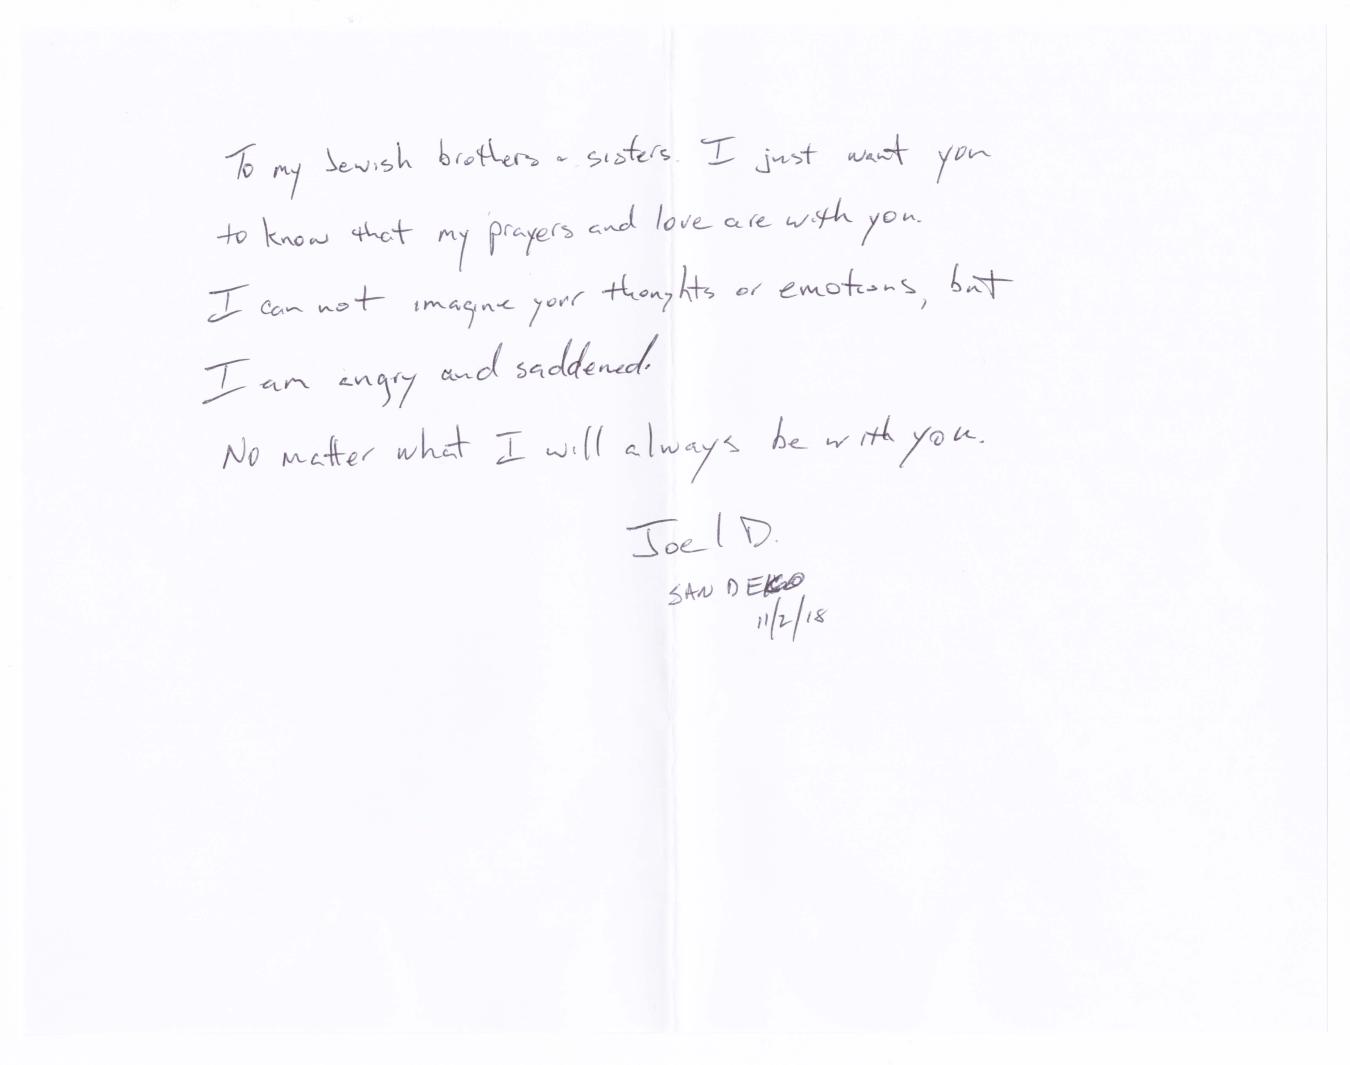 To my Jewish brothers & sisters. I just want you
to know that my prayers and love are with you.
I can not imagine your thoughts or emotions, but
I am angry and saddened.
No matter what I will always be with you.
Joel D.
SAN
11/2/18